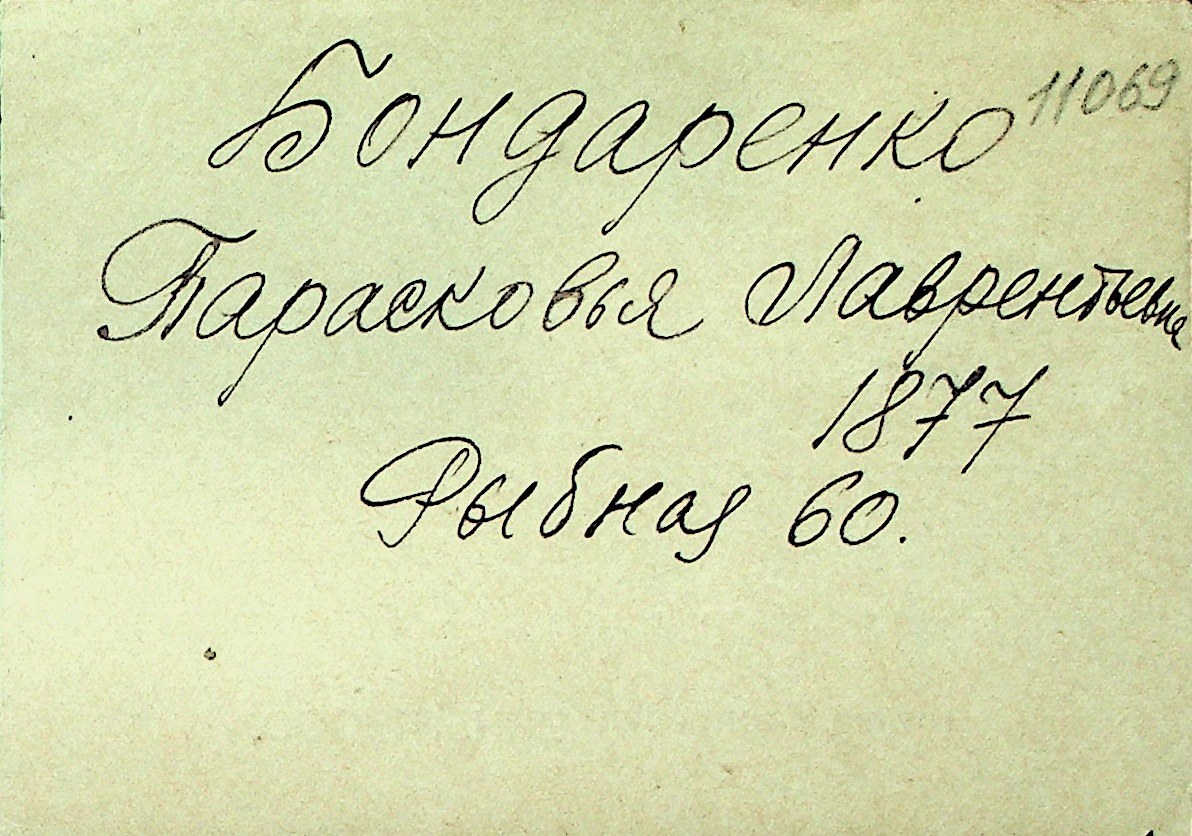 Бондаренко 11069
Парасковья Лаврентьевна
1877
Рыбная 60.